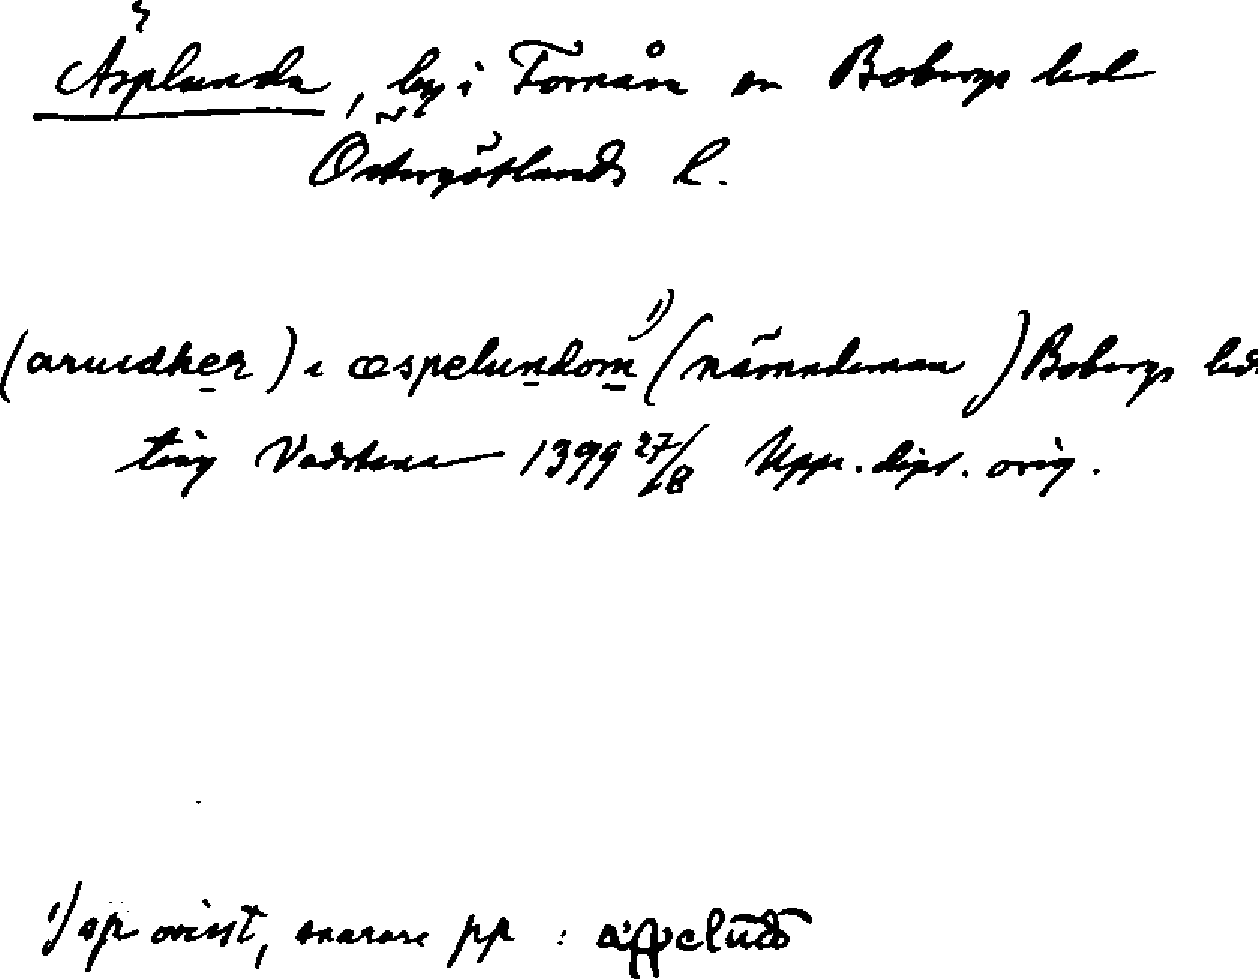 Äsplunda, by i Fornåsa sn Bobergs hd
Östergötlands l.
(aruidher) i æspelundom 1) (nämndeman) Bobergs hds
ting Vadstena 1399 27/8 Upps. dipl. orig.
1) sp ovisst, snarare pp :